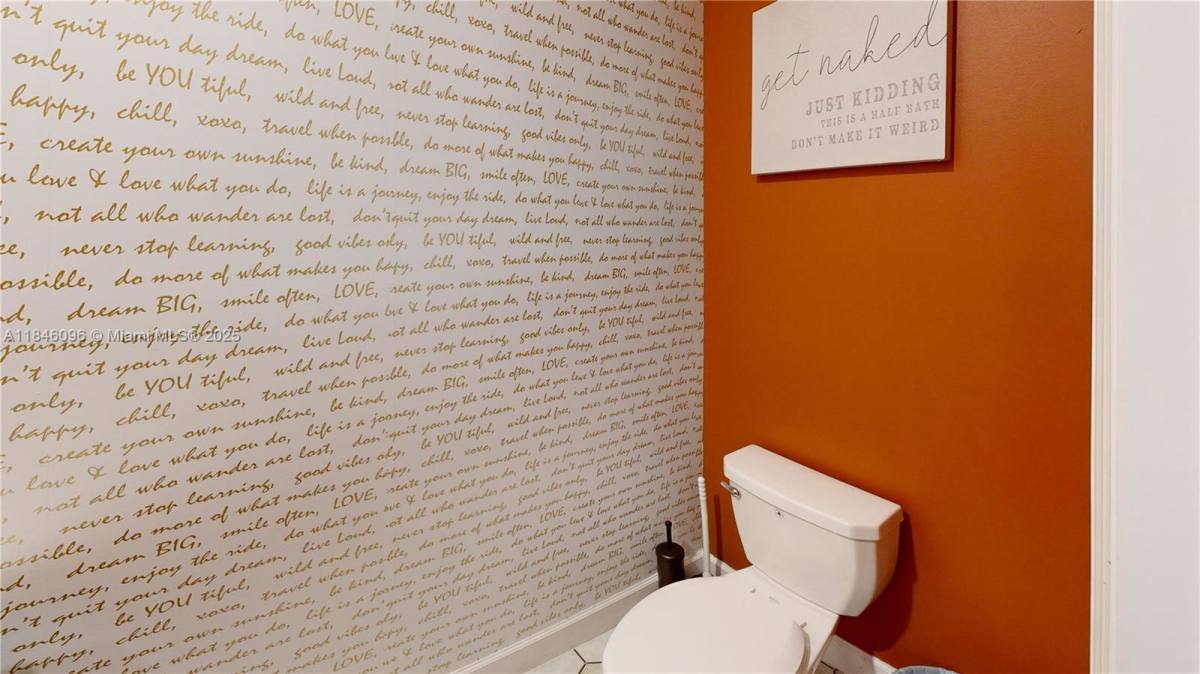 often,
what you
not all who wander are lost, don't
wild and free, never stop learning, good vibes
happy, chill, xoxo, travel when possible, do more of what makes you happy
LOVE, create your own sunshine, be kind, dream BIG, smile often, LOVE,
enjoy the ride, do what you love & love what you do, life is a journey, enjoy the ride, do what you
quit your day dream, live Loud, not all who wander are lost, don't quit your day dream, live Loud, not
only, be YOU tiful, wild and free, never stop learning, good vibes only, be YOU tiful, wild and free,
happy, chill, xoxo, travel when possble, do more of what makes you happy, chill, xoxo, travel when possible
create your own sunshine, be kind, dream BIG, smile often, LOVE, create your own sunshine, be kind,
love & love what you do, life is a journey, enjoy the ride, do what you love & love what you do, life is a
not all who wander are lost, don't quit your day dream, live Loud, not all who wander are lost, don't
never stop learning, good vibes only, be YOU tiful, wild and free, never stop learning, good vibes only
ossible, do more of what makes you hapy, chill, xoxo, travel when possible, do more of what makes you happy
dream BIG, smile often, LOVE, reate your own sunshine, be kind, dream BIG, smile often, LOVE,
journey, enjoy the ride, do what you love & love what you do, life is a journey, enjoy the ride, do what you
n't quit your day dream, live Loud, not all who wander are lost, don't quit your day dream, live Loud, not
only, be YOU tiful, wild and free, never stop learning, good vibes only, be YOU tiful, wild and free,
happy, chill, xoxo, travel when possble, do more of what makes you happy, chill, xoxo, travel when possible
create your own sunshine, be kind, dream BIG, smile often, LOVE, create your own sunshine, be kind,
love & love what you do, life is a journey, enjoy the ride, do what you love & love what you do, life is a journ
not all who wander are lost, don't quit your day dream, live Loud, not all who wander are lost, don't
never stop learning, good vibes only, be YOU tiful, wild and free, never stop learning, good vibes only
ossible, do more of what makes you hapy, chill, xoxo, travel when possible, do more of what makes you happy
dream BIG, smile often, LOVE, reate your own sunshine, be kind, dream BIG, smile often, LOVE,
journey, enjoy the ride, do what you love & love what you do, life is a journey, enjoy the ride, do what you
n't quit your day dream, live Loud, not all who wander are lost, don't quit your day dream, live Loud,
only, be YOU tiful, wild and free, never stop learning, good vibes only, be YOU tiful, wild and free,
happy, chill, xoxo, travel when possble, do more of what makes you happy, chill, xoxo, travel when possible
create your own sunshine, be kind, dream BIG, smile often, LOVE, create your own sunshine,
what you do, life is a journey, enjoy the ride, do what you love & love what you do,
lost, don't quit your day dream, live Loud, not all who wander are lost,
learning, good vibes only, be YOU tiful, wild and free, never stop learning, good vibes only,
makes you hapy, chill, xoxo, travel when possible, do more of what
LOVE, reate your own sunshine, be kind, dream BIG,
love & love what you do, life is a journey,
not all who wander are lost, don't
never stop learning, good vibes only,
get naked
JUST KIDDING
THIS IS A HALF BATH
DON'T MAKE IT WEIRD
A11846096 © MiamiMLS® 2025